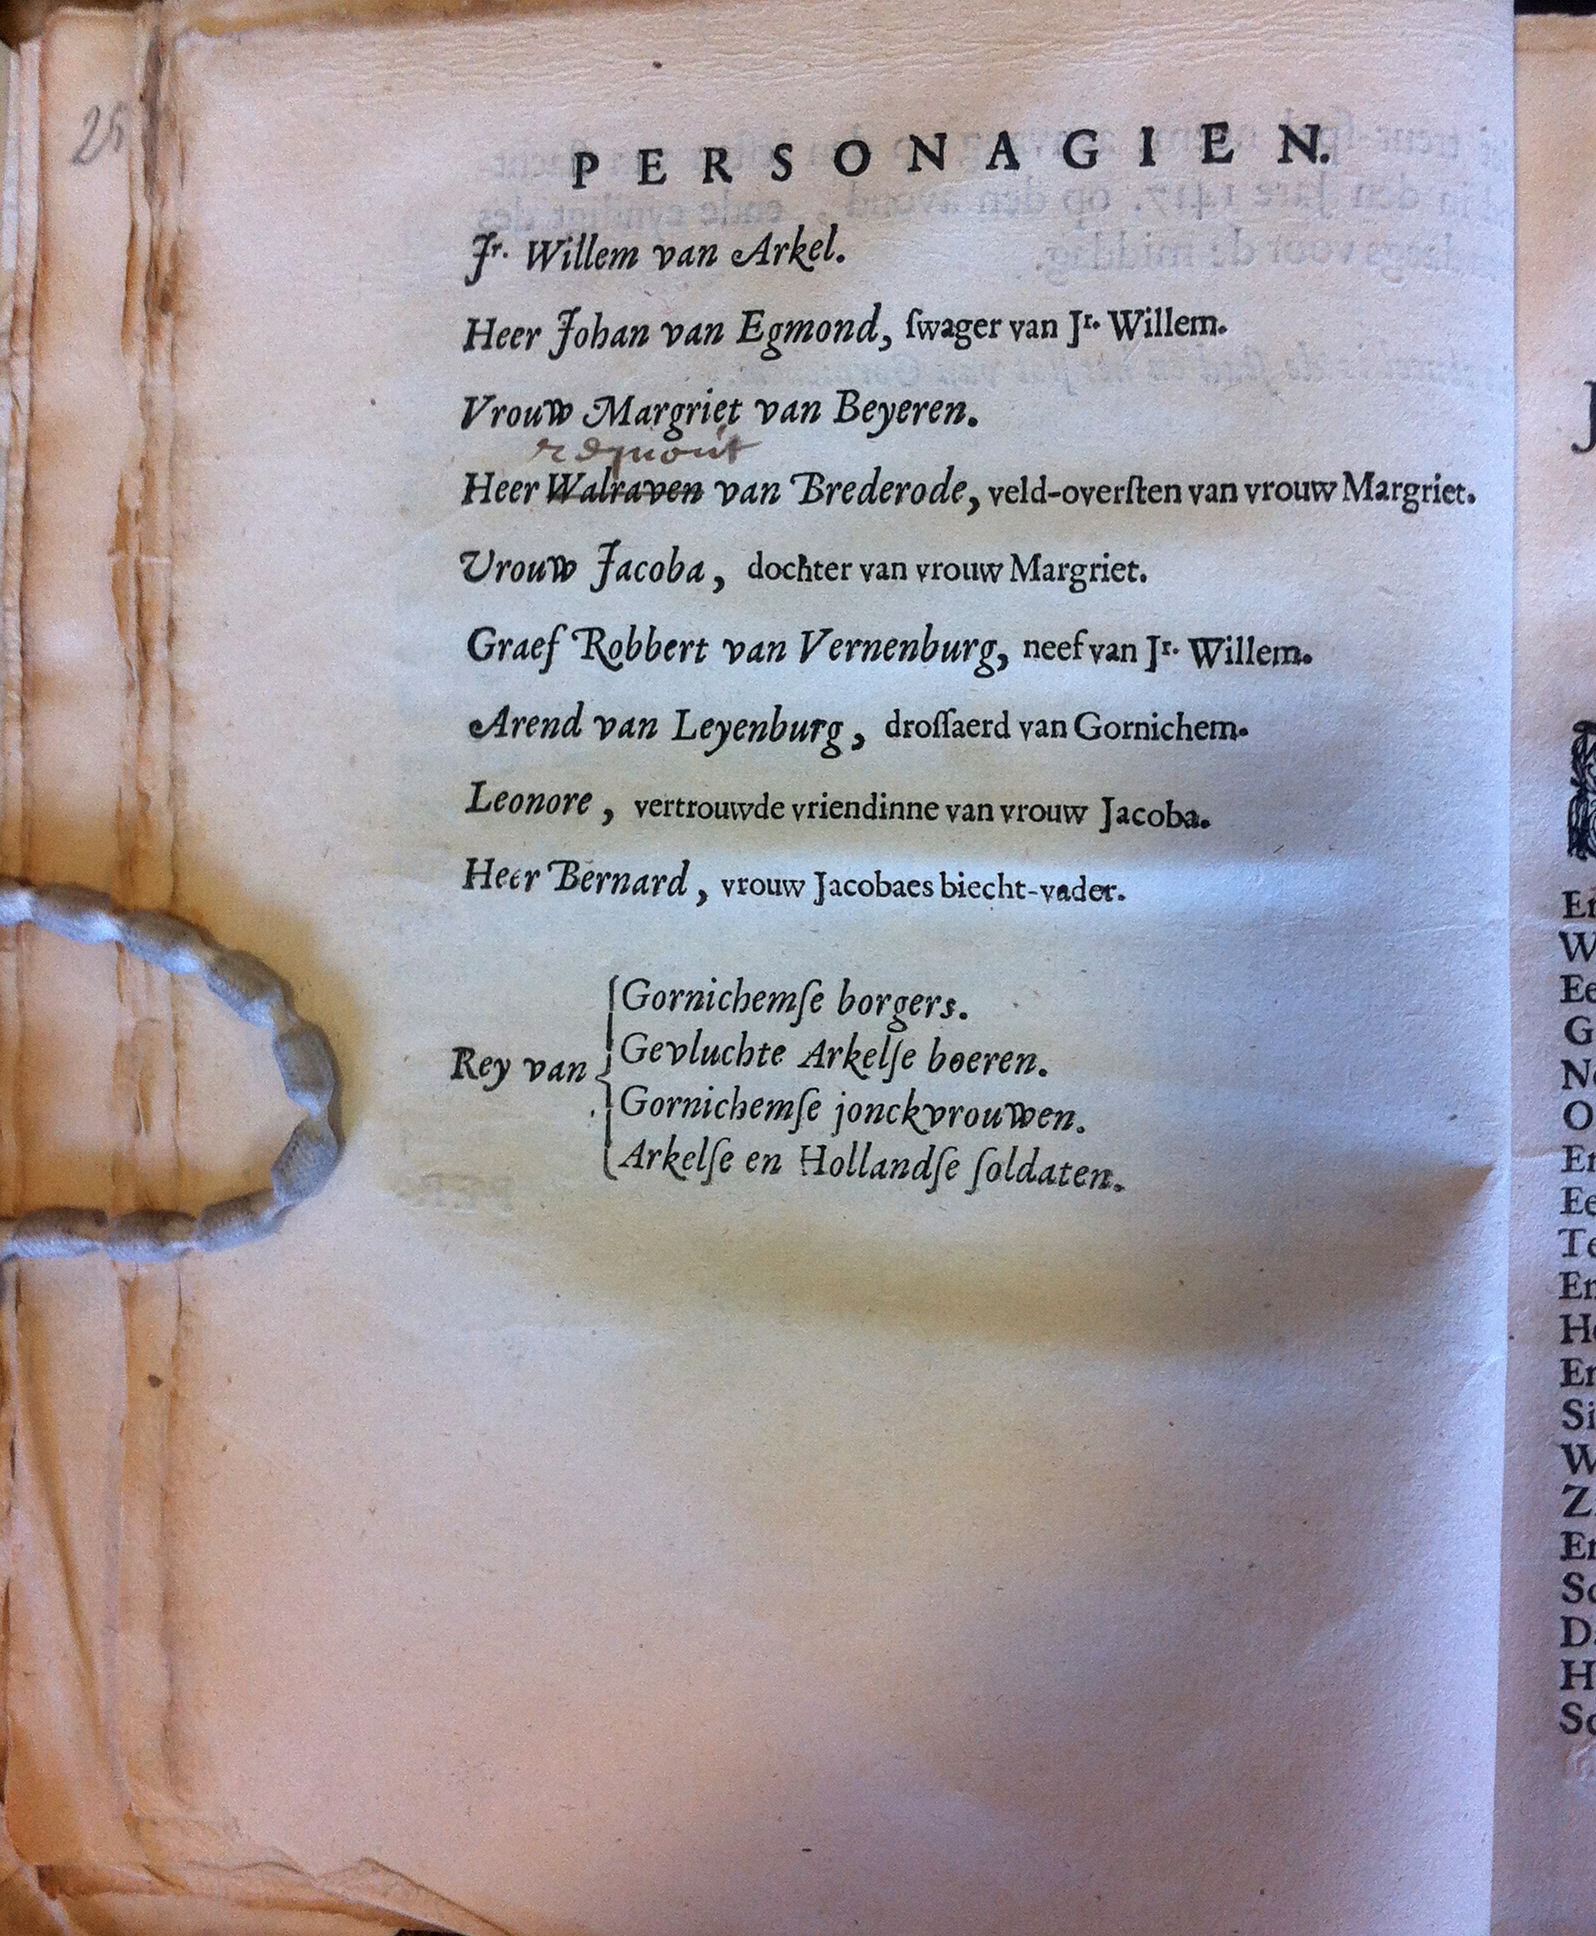 25
PERSONAGIEN.
Jr. Willem van Arkel.
Heer Johan van Egmond, ſwager van Jr. Willem.
Vrouw Margriet van Beyeren.
Heer Walraven van Brederode, veld-overſten van vrouw Margriet.
Vrouw Jacoba, dochter van vrouw Margriet.
Graef Robbert van Vernenburg, neef van Jr. Willem.
Arend van Leyenburg, droſſaerd van Gornichem.
Leonore, vertrouwde vriendinne van vrouw Jacoba.
Heer Bernard, vrouw Jacobaes biecht-vader.
Rey van
Gornichemſe borgers.
Gevluchte Arkelſe boeren.
Gornichemſe jonckvrouwen.
Arkelſe en Hollandſe ſoldaten.